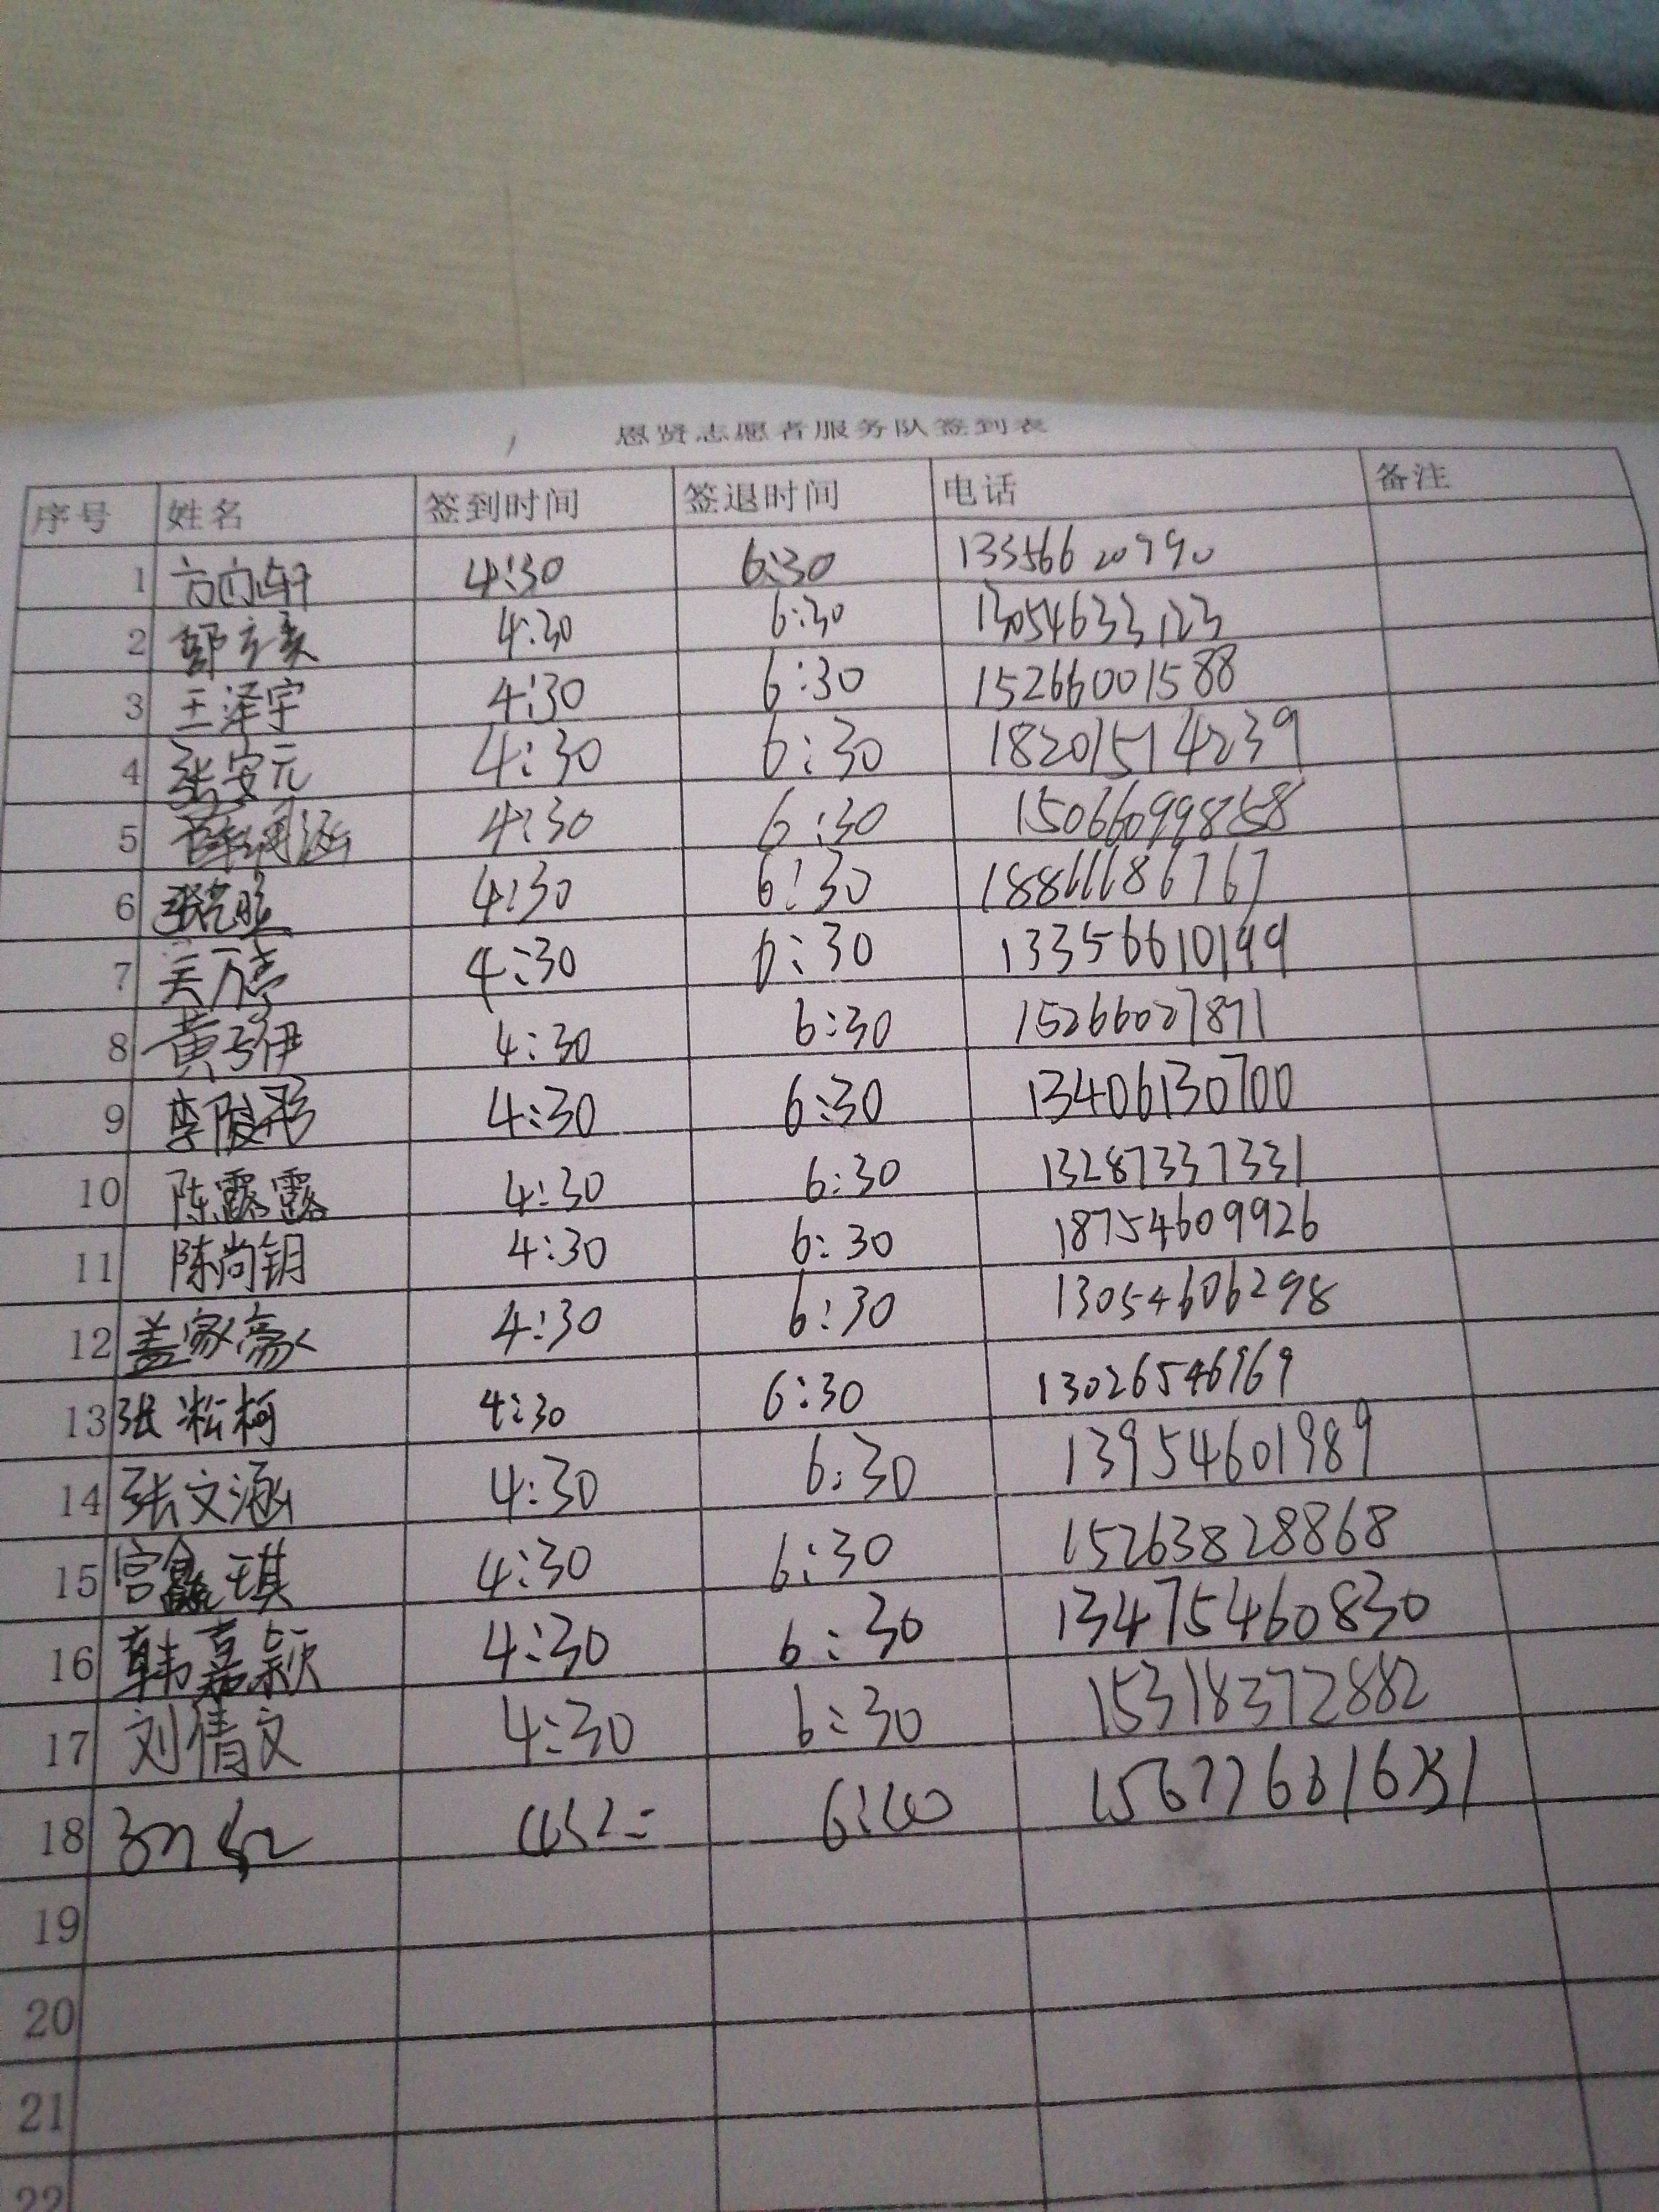 恩贤志愿者服务队签到表
序号 姓名 签到时间 签退时间 电话 备注
1 4:30 6:30 13356620790
2 4:30 6:30 13054633123
3 王泽宇 4:30 6:30 15266001588
4 张安元 4:30 6:30 18201514239
5 4:30 6:30 15066099858
6 4:30 6:30 18866686767
7 4:30 6:30 13356610199
8 黄伊 4:30 6:30 15266027871
9 李 彤 4:30 6:30 13406130700
10 陈露露 4:30 6:30 13287337331
11 陈尚钥 4:30 6:30 18754609926
12 盖家豪 4:30 6:30 13054606298
13 张淞柯 4:30 6:30 13026546969
14 张文涵 4:30 6:30 13954601989
15 宫鑫琪 4:30 6:30 15263828868
16 韩嘉颖 4:30 6:30 13475460830
17 刘倩文 4:30 6:30 15318372882
18
19
20
21
22